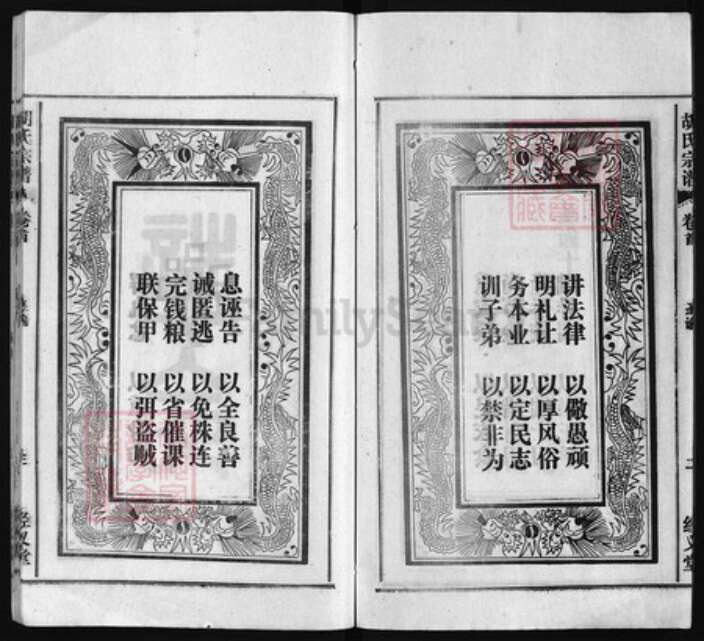 胡氏宗谱
卷首
讲法律 以儆愚顽
明礼让 以厚风俗
务本业 以定民志
训子弟 以禁非为
息诬告 以全良善
诫匿逃 以免株连
完钱粮 以省催课
联保甲 以弭盗贼
卷首
三
经义堂
FamilySearch